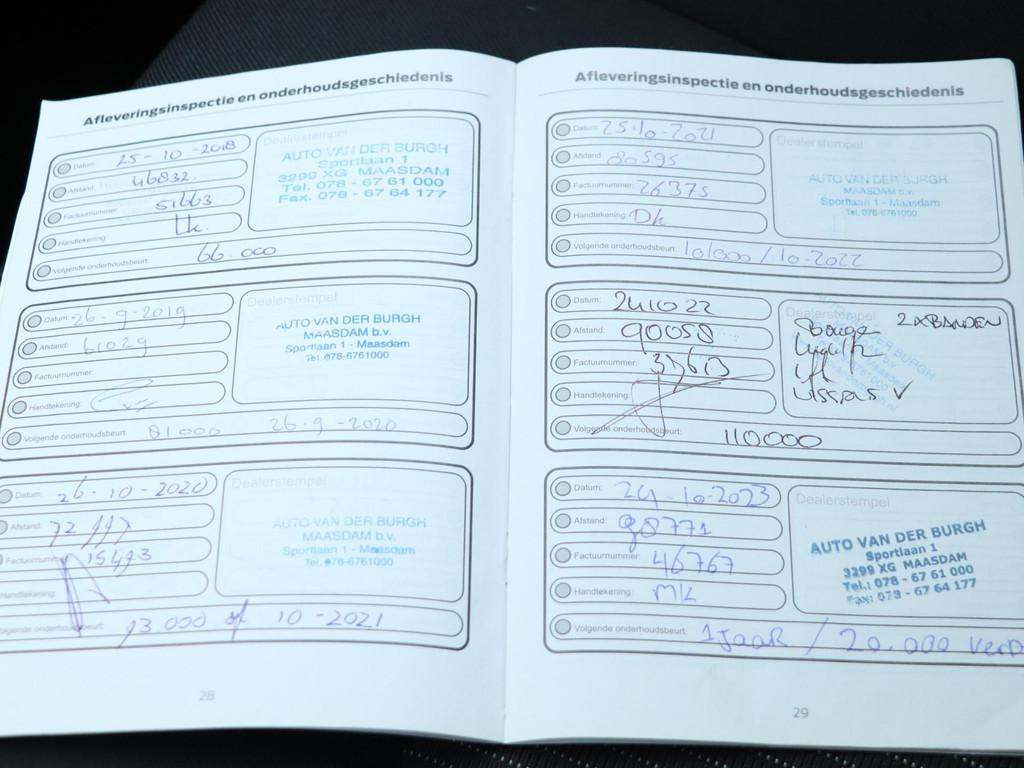 Afleveringsinspectie en onderhoudsgeschiedenis
Datum: 25-10-2018
Afstand: 46832.
Factuurnummer: 51663
Handtekening:
Volgende onderhoudsbeurt: 66.000
Dealerstempel
AUTO VAN DER BURGH
Sportlaan 1
3299 XG MAASDAM
Tel. 078 - 67 61 000
Fax. 078 - 67 64 177
Datum: 26-9-2019
Afstand: 61029
Factuurnummer:
Handtekening:
Volgende onderhoudsbeurt: 81000 26-9-2020
Dealerstempel
AUTO VAN DER BURGH
MAASDAM b.v.
Sportlaan 1 - Maasdam
Tel. 078-6761000
Datum: 26-10-2020
Afstand:
Factuurnummer: 15493
Handtekening:
Volgende onderhoudsbeurt: 10-2021
Dealerstempel
AUTO VAN DER BURGH
MAASDAM b.v.
Sportlaan 1 - Maasdam
Tel. 078-6761000
28
Afleveringsinspectie en onderhoudsgeschiedenis
Datum: 25-10-2021
Afstand: 80595
Factuurnummer: 26375
Handtekening: Dk
Volgende onderhoudsbeurt: 101000/10-2022
Dealerstempel
AUTO VAN DER BURGH
MAASDAM b.v.
Sportlaan 1 - Maasdam
Tel. 078-6761000
Datum: 241022
Afstand: 90058
Factuurnummer:
Handtekening:
Volgende onderhoudsbeurt: 110000
Dealerstempel
2XBANDEN
DER BURGH
Datum: 24-10-2023
Afstand: 98771
Factuurnummer: 46767
Handtekening: MK
Volgende onderhoudsbeurt: 1 JAAR / 20.000 VERD
Dealerstempel
AUTO VAN DER BURGH
Sportlaan 1
3299 XG MAASDAM
Tel.: 078 - 67 61 000
Fax: 078 - 67 64 177
29